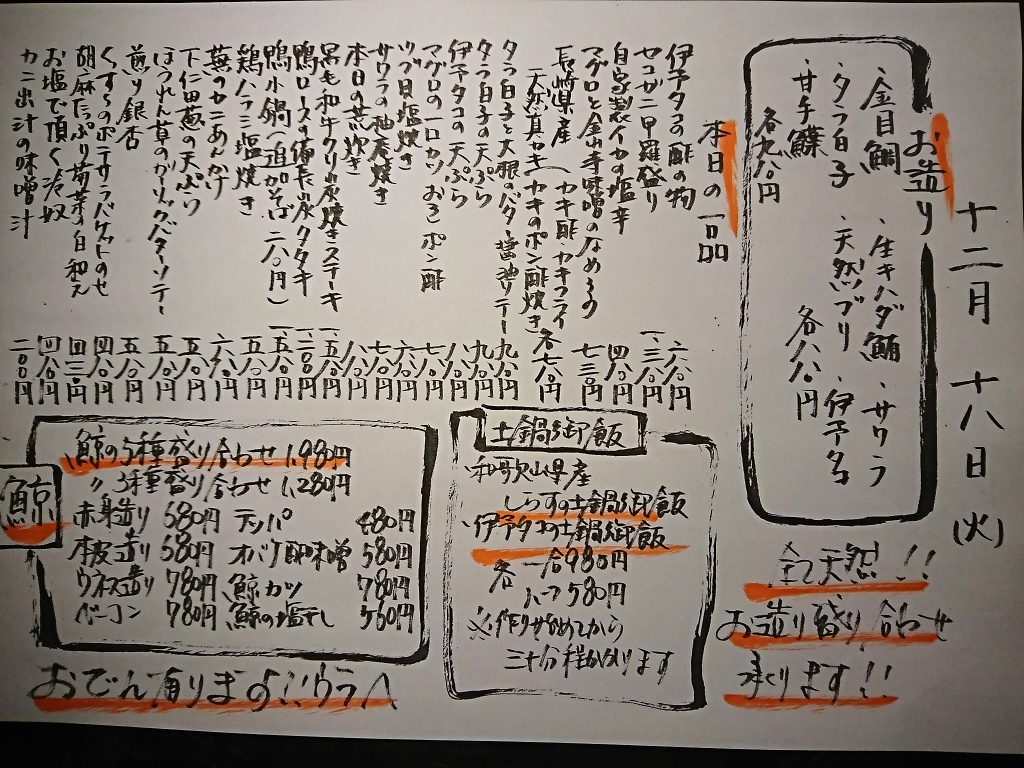 十二月 十八日 (火)
お造り
・金目鯛 ・生キハダ鮪 ・サワラ
・タラ白子 ・天然ブリ ・伊予ダコ
・甘手鰈 各八八〇円
各九八〇円
全て天然!!
お造り盛り合わせ
承ります!!
本日の一品
伊予タコの酢の物 六八〇円
セコガニ甲羅盛り 一、三八〇円
自家製イカの塩辛 四八〇円
マグロと金山寺味噌のなめろう 七三〇円
長崎県産 (カキ酢・カキフライ
天然真カキ(カキのポン酢焼き 各七八〇円
タラ白子と大根のバター醤油ソテー 九八〇円
タラ白子の天ぷら 九八〇円
伊予タコの天ぷら 八八〇円
マグロの一口カツ おろしポン酢 七八〇円
ツブ貝塩焼き 六八〇円
サワラの柚庵焼き 七八〇円
本日の煮炊き 八八〇円
黒毛和牛クリ炭焼きステーキ 一、五八〇円
鴨ロースの備長炭タタキ 一、二〇〇円
鴨小鍋(追加そば 二八〇円) 一、五八〇円
鶏ハラミ塩焼き 五八〇円
蕪のカニあんかけ 六八〇円
下仁田葱の天ぷら 五八〇円
ほうれん草のガーリックバターソテー 五八〇円
煎り銀杏 五八〇円
くずしのポテサラバケットのせ 四八〇円
胡麻たっぷり菊菜の白和え 四三〇円
お塩で頂く冷奴 四八〇円
カニ出汁の味噌汁 二〇〇円
土鍋御飯
・和歌山県産
しらすの土鍋御飯
・伊予タコの土鍋御飯
各 一合980円
ハーフ580円
※作りはじめてから
三十分程かかります
鯨
・鯨の5種盛り合わせ 1,980円
・〃 3種盛り合わせ 1,280円
・赤身造り 680円 ・テッパ 480円
・本皮造り 580円 ・オバケ酢味噌 580円
・ウネス造り 780円 ・鯨カツ 780円
・ベーコン 780円 ・鯨の塩干し 560円
おでん有ります!!ウラへ